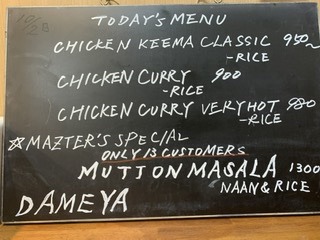 10/28
TODAY'S MENU
CHICKEN KEEMA CLASSIC 950~
-RICE
CHICKEN CURRY 900
-RICE
CHICKEN CURRY VERY HOT 980
-RICE
☆MAZTER'S SPECIAL
ONLY 13 CUSTOMERS
MUTTON MASALA 1300
NAAN & RICE
DAMEYA